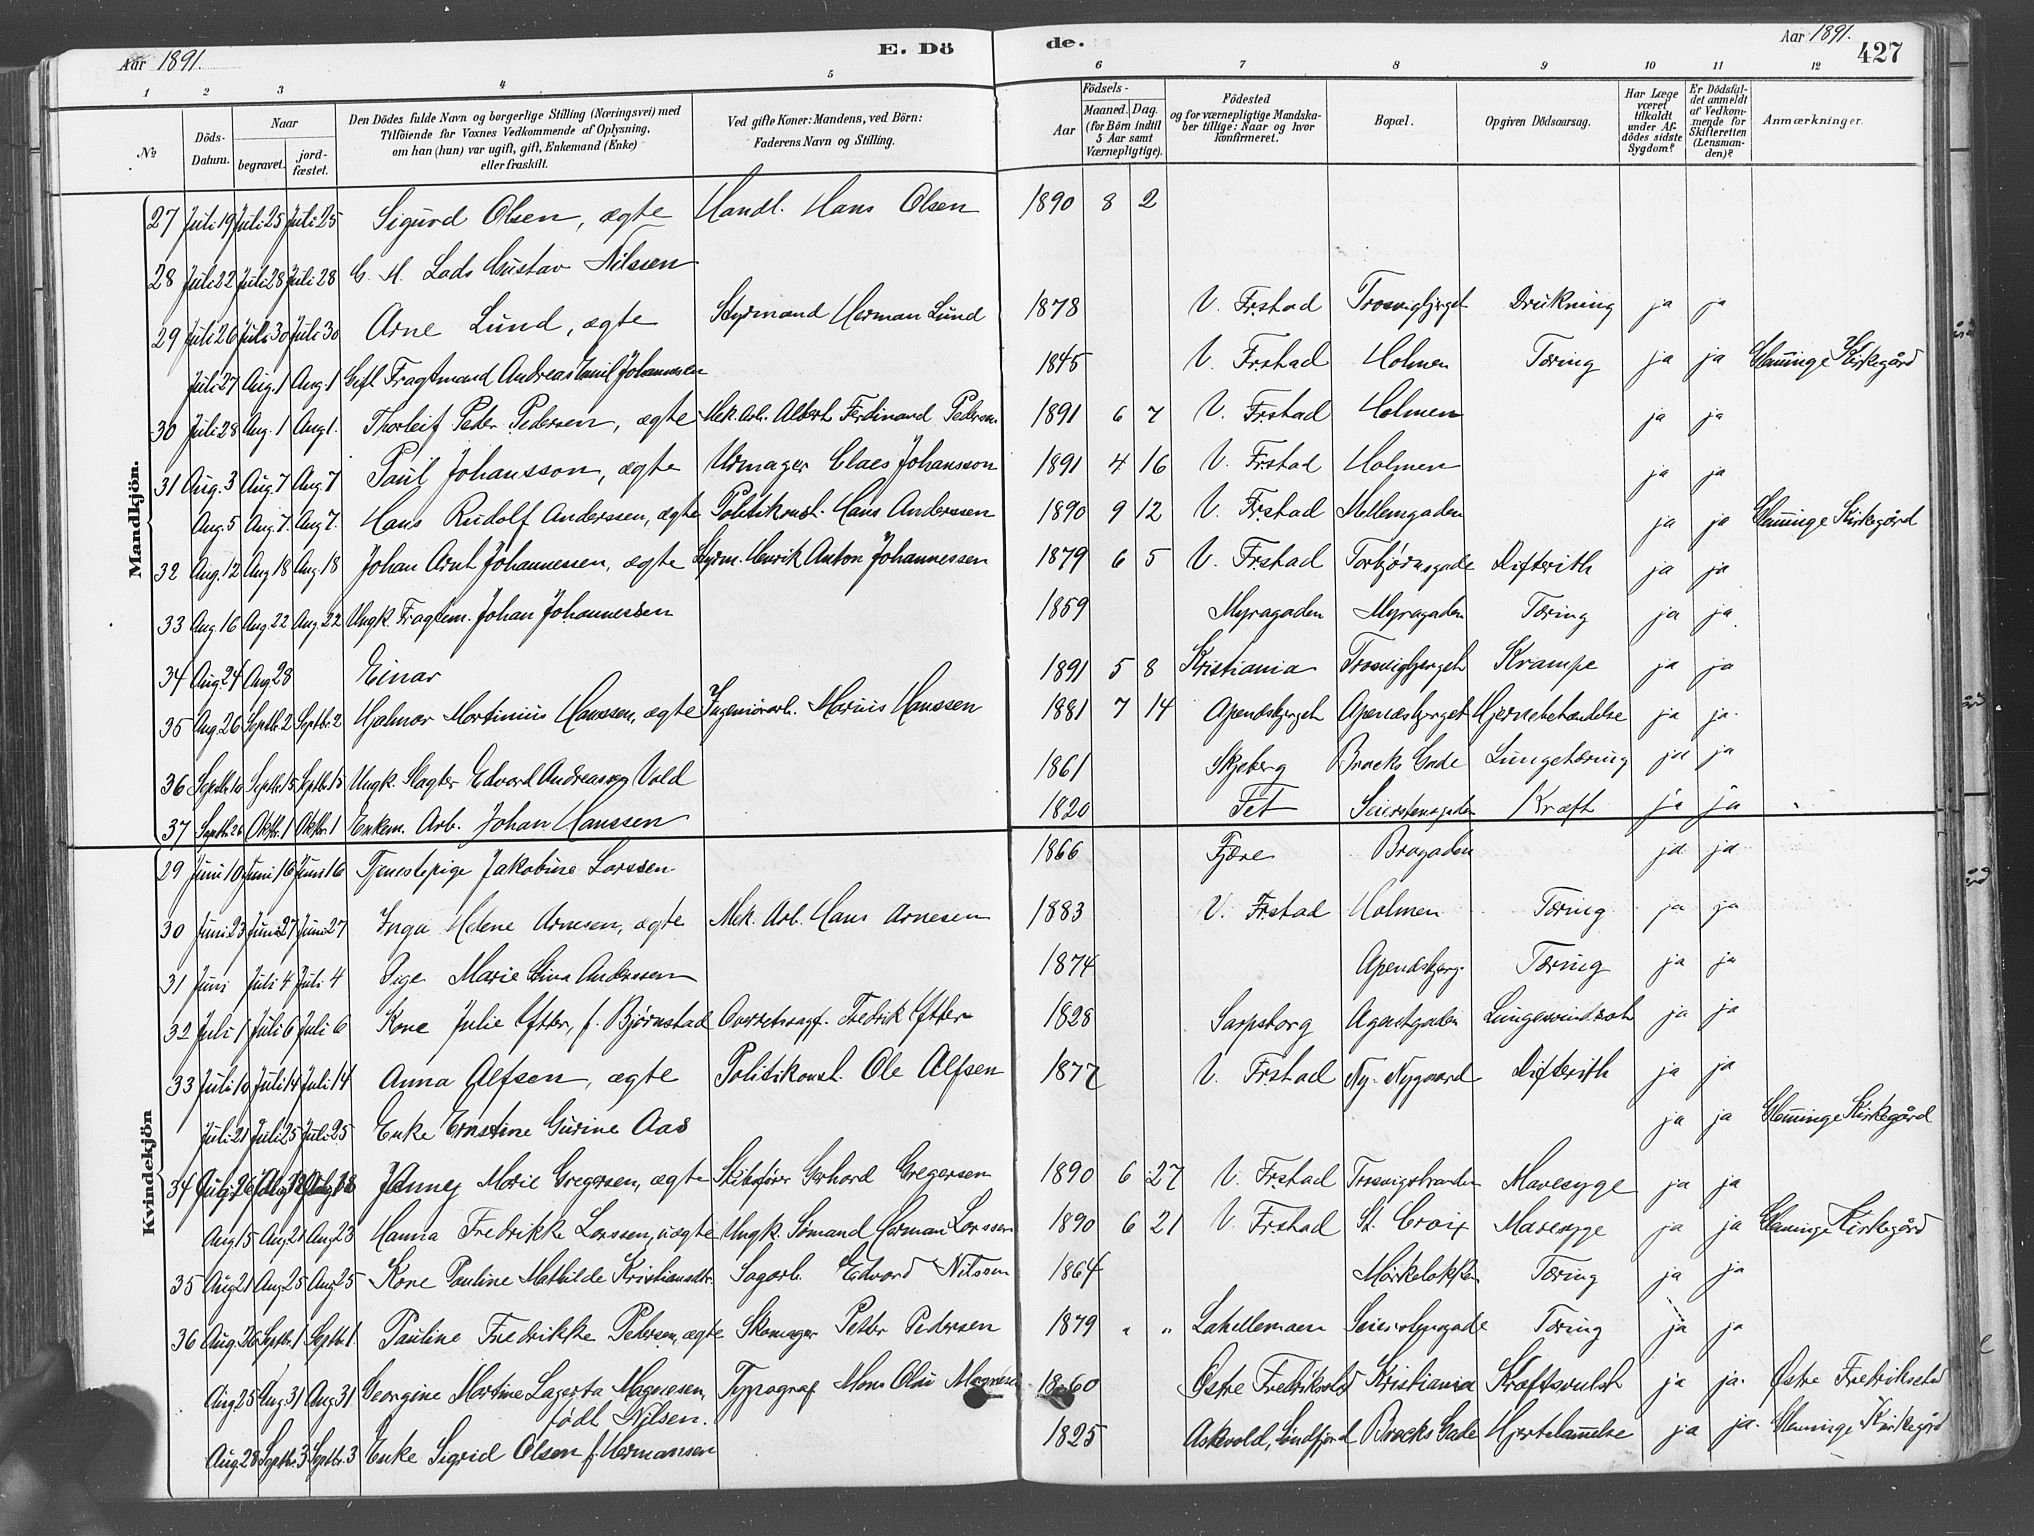 Aar 1891. E. Dö de. Aar 1891. 427
1 2 3 4 5 6 7 8 9 10 11 12
№ Döds-Datum. Naar begravet. jord-fæstet. Den Dödes fulde Navn og borgerlige Stilling (Næringsvei) med Tilföiende for Voxnes Vedkommende af Oplysning, om han (hun) var ugift, gift, Enkemand (Enke) eller fraskilt. Ved gifte Koner: Mandens, ved Börn: Faderens Navn og Stilling. Aar Födsels- Maaned. Dag. (for Börn indtil 5 Aar samt Værnepligtige). Födested og for værnepligtige Mandska-ber tillige: Naar og hvor konfirmeret. Bopæl. Opgiven Dödsaarsag. Har Læge været tilkaldt under Af-dödes sidste Sygdom? Er Dödsfal-det anmeldt af Vedkom-mende for Skifteretten (Lensman-den)? Anmærkninger.
Mandkjön.
27 Juli 19 Juli 25 Juli 25 Sigurd Olsen, ægte Handl. Hans Olsen 1890 8 2
28 Juli 22 Juli 28 Juli 28 Lods Gustav Nilssen
29 Juli 26 Juli 30 Juli 30 Arne Lund, ægte Styrmand Herman Lund 1878 V. Frstad Trosvigbjerget Drukning ja ja
Juli 27 Aug. 1 Aug. 1 Gift Fragtmand Andreas Emil Johannesen 1845 V. Frstad Holmen Tæring ja ja Glemminge Kirkegård
30 Juli 28 Aug. 1 Aug 1. Thorleif Peder Pedersen, ægte Mek. Arb. Albert Ferdinand Pedersen 1891 6 7 V. Frstad Holmen ja ja
31 Aug. 3 Aug. 7 Aug. 7 Paul Johansson, ægte Urmager Claes Johansson 1891 4 16 V. Frstad Holmen ja ja
Aug. 5 Aug. 7. Aug 7. Hans Rudolf Anderssen, ægte Politikonst. Hans Anderssen 1890 9 12 V. Frstad Mellemgaden ja ja Glemminge Kirkegård
32 Aug. 12 Aug 18 Aug. 18 Johan Arnt Johannessen, ægte Styrm. Henrik Anton Johannessen 1879 6 5 V. Frstad Torbjørnsgade Difterith ja ja
33 Aug. 16 Aug. 22 Aug. 22 Ungk. Fragtem. Johan Johannessen 1859 Myragaden Myragaden Tæring ja ja
34 Aug. 24 Aug. 28 Einar 1891 5 8 Kristiania Trosvigbjerget Krampe ja ja
35 Aug. 26 Septb. 2 Septb. 2 Hjalmar Martinius Hanssen, ægte Ingeniørarb. Marius Hanssen 1881 7 14 Apenæsbjerget Apenæsbjerget Hjernebetændelse ja ja.
36 Septb. 10 Septb. 15 Septb. 15 Ungk. Slagter Edvard Andreassen Vold 1861 Skjeberg Brocks Gade Lungetæring ja ja
37 Septb. 26 Oktbr. 1 Oktbr. 1 Enkem. Arb. Johan Hanssen 1820 Tet Seierstensgaden Kræft ja ja
Kvindekjön
29 Juni 10 Juni 16 Juni 16 Tjenestepige Jakobine Larssen 1866 Fjære Bragaden ja ja
30 Juni 23 Juni 27 Juni 27 Inga Helene Arnesen, ægte Mek. Arb. Hans Arnesen 1883 V. Frstad Holmen Tæring ja ja
31 Juni Juli 4 Juli 4 Pige Marie Stina Andresen 1874 Apenæsbjerg. Tæring ja ja
32 Juli 1 Juli 6 Juli 6 Kone Julie Ytter, f. Bjørnstad Overretssagf. Fredrik Ytter 1828 Sarpsborg Agentgaden Lungesvindsot ja ja
33 Juli 10 Juli 14 Juli 14 Anna Alfsen, ægte Politikonst. Ole Alfsen 1877 V. Frstad Ny-Nygaard Difterith ja ja
Juli 21 Juli 25 Juli 25 Enke Ernstine Gurine Aas ja ja Glemminge Kirkegård
34 Janney Marie Gregersen, ægte Skibsfører Gerhard Gregersen 1890 6 27 V. Frstad Trosvigstranden Mavesyge ja ja
Aug 15 Aug 21 Aug 23 Hanna Fredrikke Larssen, uægte Ungk. Sømand Herman Larssen 1890 6 21 V. Frstad St. Croix Mavesyge ja ja Glemminge Kirkegård
35 Aug 21 Aug. 25 Aug 25 Kone Pauline Mathilde Kristiansdtr. Sagarb. Edvard Nilssen 1864 Mørkeløkken Tæring ja ja
36 Aug. 26 Septbr. 1 Septbr. 1. Pauline Fredrikke Pedersen, ægte Skomager Petter Pedersen 1879 " " Lahellemoen Seierstensgade Tæring ja ja
Aug. 25 Aug 31 Aug 31. Georgine Martine Lagerta Magnesen, Typograf Mons Olai Magnesen 1860 Østre Fredrikstad Kristiania Kræftsvulst ja ja. Østre Fredrikstad
født Nilsen.
Aug. 28 Septbr. 3 Septbr. 3 Enke Sigrid Olsen f. Hermansen 1825 Askevold, Søndfjord Brocks Gade Hjertelammelse ja ja. Glemminge Kirkegård